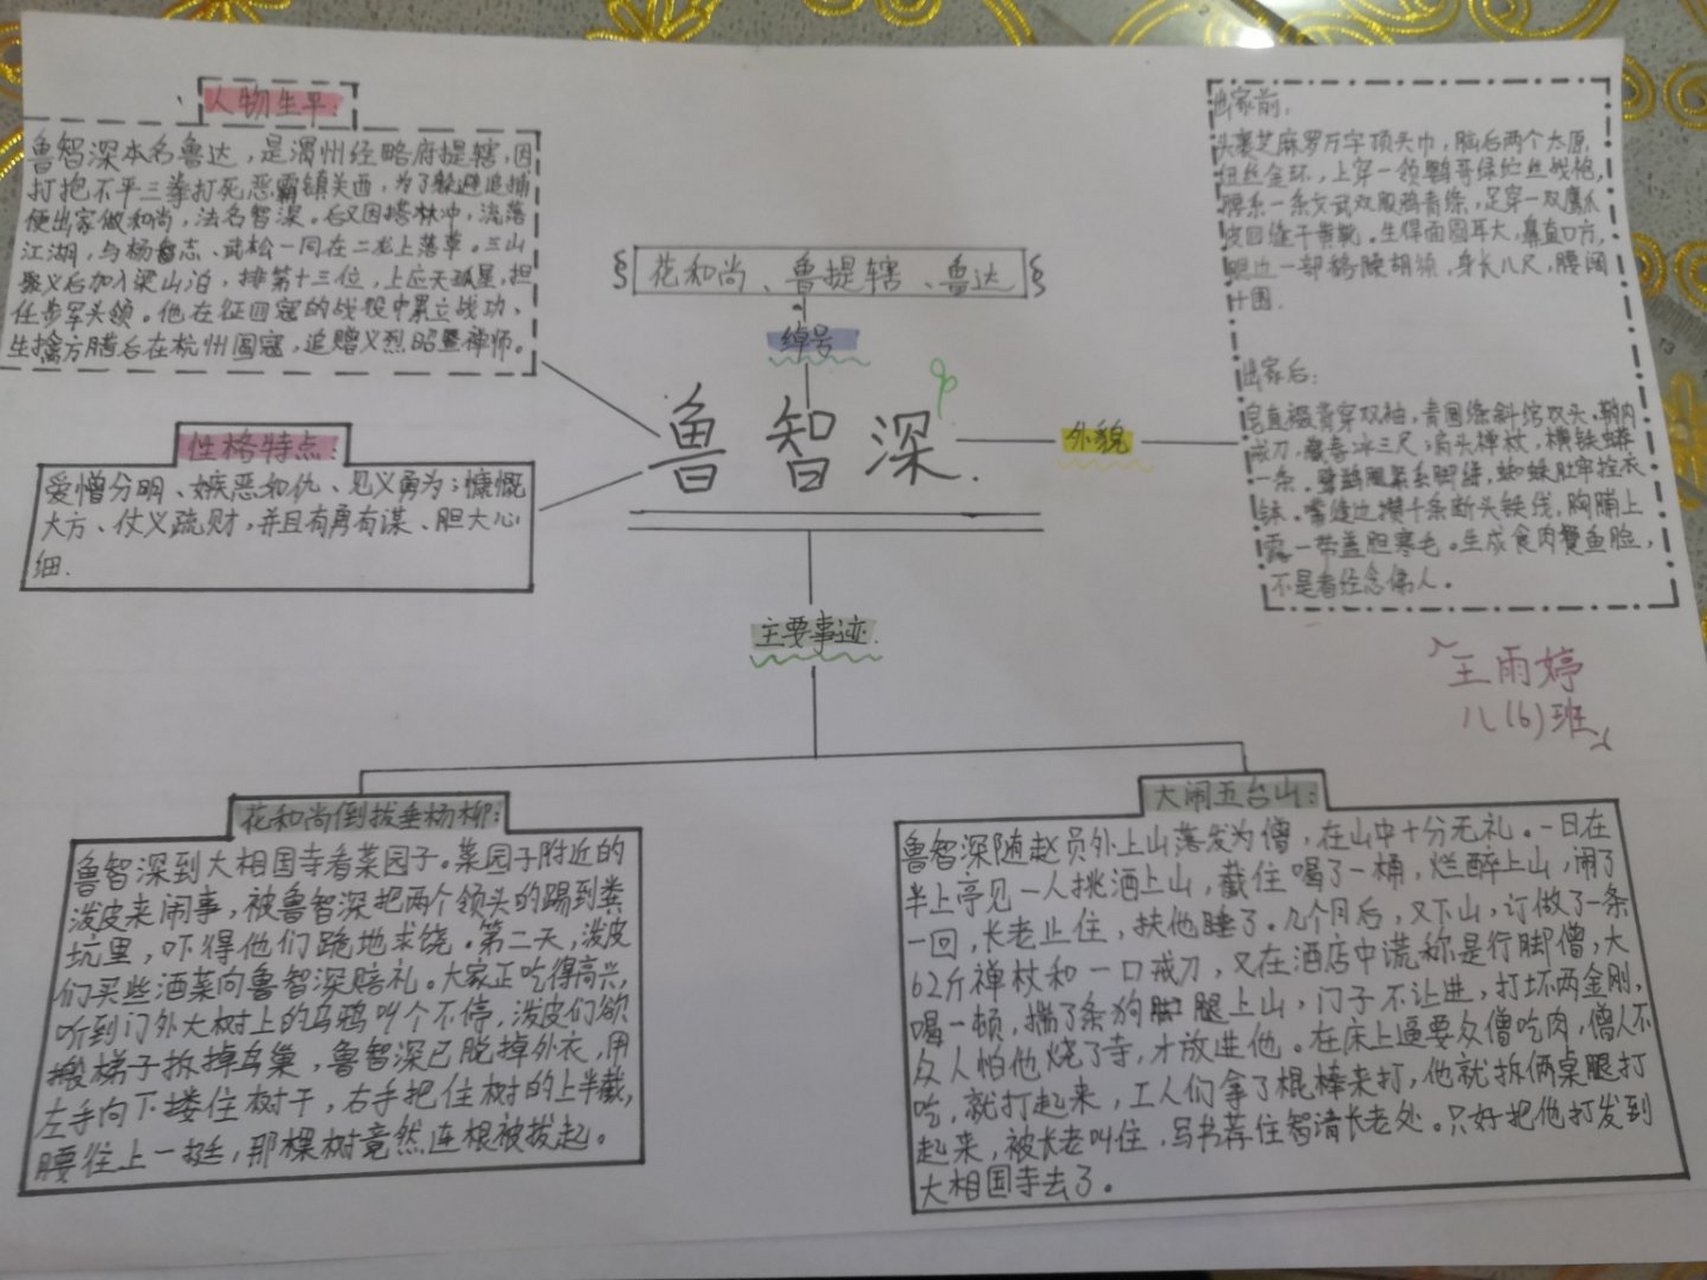 人物生平:
鲁智深本名鲁达，是渭州经略府提辖，因
打抱不平三拳打死恶霸镇关西，为了躲避追捕
便出家做和尚，法名智深。后又因搭林冲，流落
江湖，与杨志、武松一同在二龙上落草。三山
聚义后加入梁山泊，排第十三位，上应天孤星，担
任步军头领。他在征四寇的战役中累立战功、
生擒方腊后在杭州圆寂，追赠义烈昭暨禅师。
性格特点:
爱憎分明、嫉恶如仇、见义勇为；慷慨
大方、仗义疏财，并且有勇有谋、胆大心
细.
花和尚、鲁提辖、鲁达
绰号
鲁智深.
外貌
出家前:
头裹芝麻罗万字顶头巾，脑后两个太原
纽丝金环，上穿一领鹦哥绿纻丝战袍，
腰系一条文武双股鸦青绦，足穿一双鹰爪
皮四缝干黄靴。生得面圆耳大，鼻直口方，
腮边一部貉胡须，身长八尺，腰阔
十围.
出家后:
皂直裰背穿双袖，青圆绦斜绾双头.鞘内
戒刀，藏春冰三尺；肩头禅杖，横铁蟒
一条.鹭鹚腿紧系脚絣，蜘蛛肚牢拴衣
钵.嘴缝边攒千条断头铁线，胸脯上
露一带盖胆寒毛。生成食肉餐鱼脸，
不是看经念佛人.
王雨婷
八(6)班
主要事迹.
花和尚倒拔垂杨柳:
鲁智深到大相国寺看菜园子。菜园子附近的
泼皮来闹事，被鲁智深把两个领头的踢到粪
坑里，吓得他们跪地求饶.第二天，泼皮
们买些酒菜向鲁智深赔礼。大家正吃得高兴，
听到门外大树上的乌鸦叫个不停，泼皮们欲
搬梯子拆掉鸟巢，鲁智深已脱掉外衣，用
左手向下搂住树干，右手把住树的上半截，
腰往上一挺，那棵树竟然连根被拔起。
大闹五台山:
鲁智深随赵员外上山落发为僧，在山中十分无礼。一日在
半上亭见一人挑酒上山，截住喝了一桶，烂醉上山，闹了
一回，长老止住，扶他睡了.几个月后，又下山，订做了一条
62斤禅杖和一口戒刀，又在酒店中谎称是行脚僧，大
喝一顿，揣了条狗腿上山，门子不让进，打坏两金刚，
众人怕他烧了寺，才放进他。在床上逼要众僧吃肉，僧人不
吃，就打起来，工人们拿了棍棒来打，他就拆俩桌腿打
起来，被长老叫住，写书荐住智清长老处。只好把他打发到
大相国寺去了.